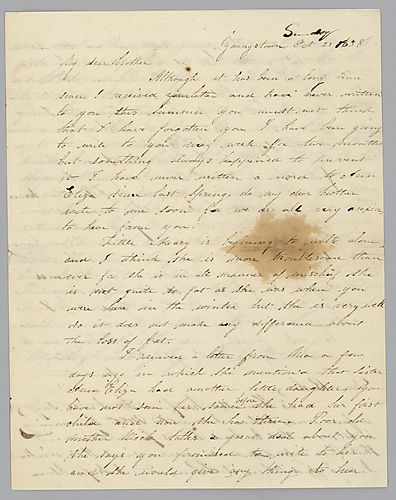 Sunday
Youngstown Oct 21 1838
My dear brother
Although it has been a long time
since I received your letter and have never written
to you this summer you must not think
that I have forgotten you I have been going
to write to you every week for two months
but something always happened to prevent
it I have never written a word to Ann
Eliza since last Spring, do my dear brother
write to me soon for we are all very anxious
to hear from you.
Little Mary is beginning to walk alone
and I think she is more troublesome than
ever for she is in all manner of mischief she
is not quite so fat as she was when you
were here in the winter but she is very well
so it does not make any difference about
the loss of fat.
I received a letter from a few
days ago in which she mentioned that sister
Ann Eliza had another little daughter. You
have not seen her since before she had her first
child and now she has three. Poor old
mother talks a great deal about you
she says you promised to write to her
and she would give any thing to hear